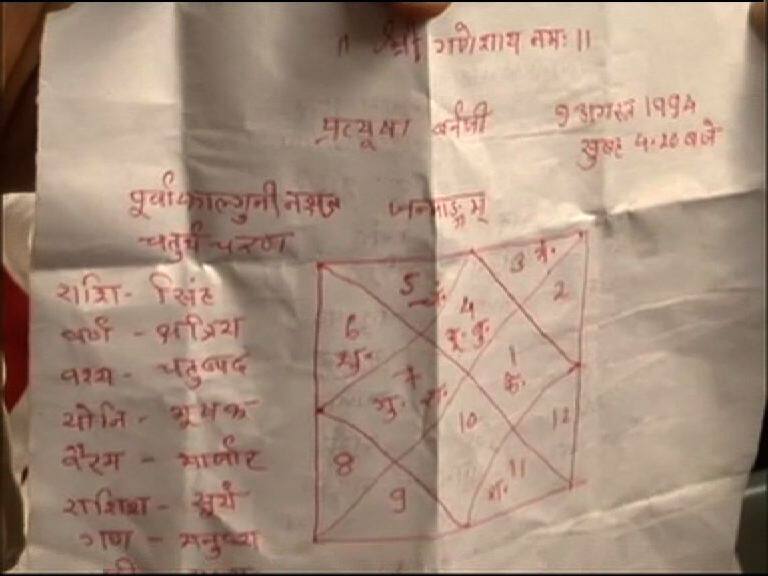 ॥ श्री गणेशाय नमः ॥
प्रत्यूषा बर्नजी
9 अगस्त 1994
सुबह 5.20 बजे
पूर्वाफाल्गुनी नक्षत्र
जन्माङ्गम्
चतुर्थ चरण
राशि - सिंह
वर्ण - क्षत्रिय
वश्य - चतुष्पद
योनि - मूषक
वैरम - मार्जार
राशिश - सूर्य
गण - मनुष्य
5 चं.
4
सू. बु.
3
2
6
शु.
7
गु. रा.
1
के.
8
9
10
11
12